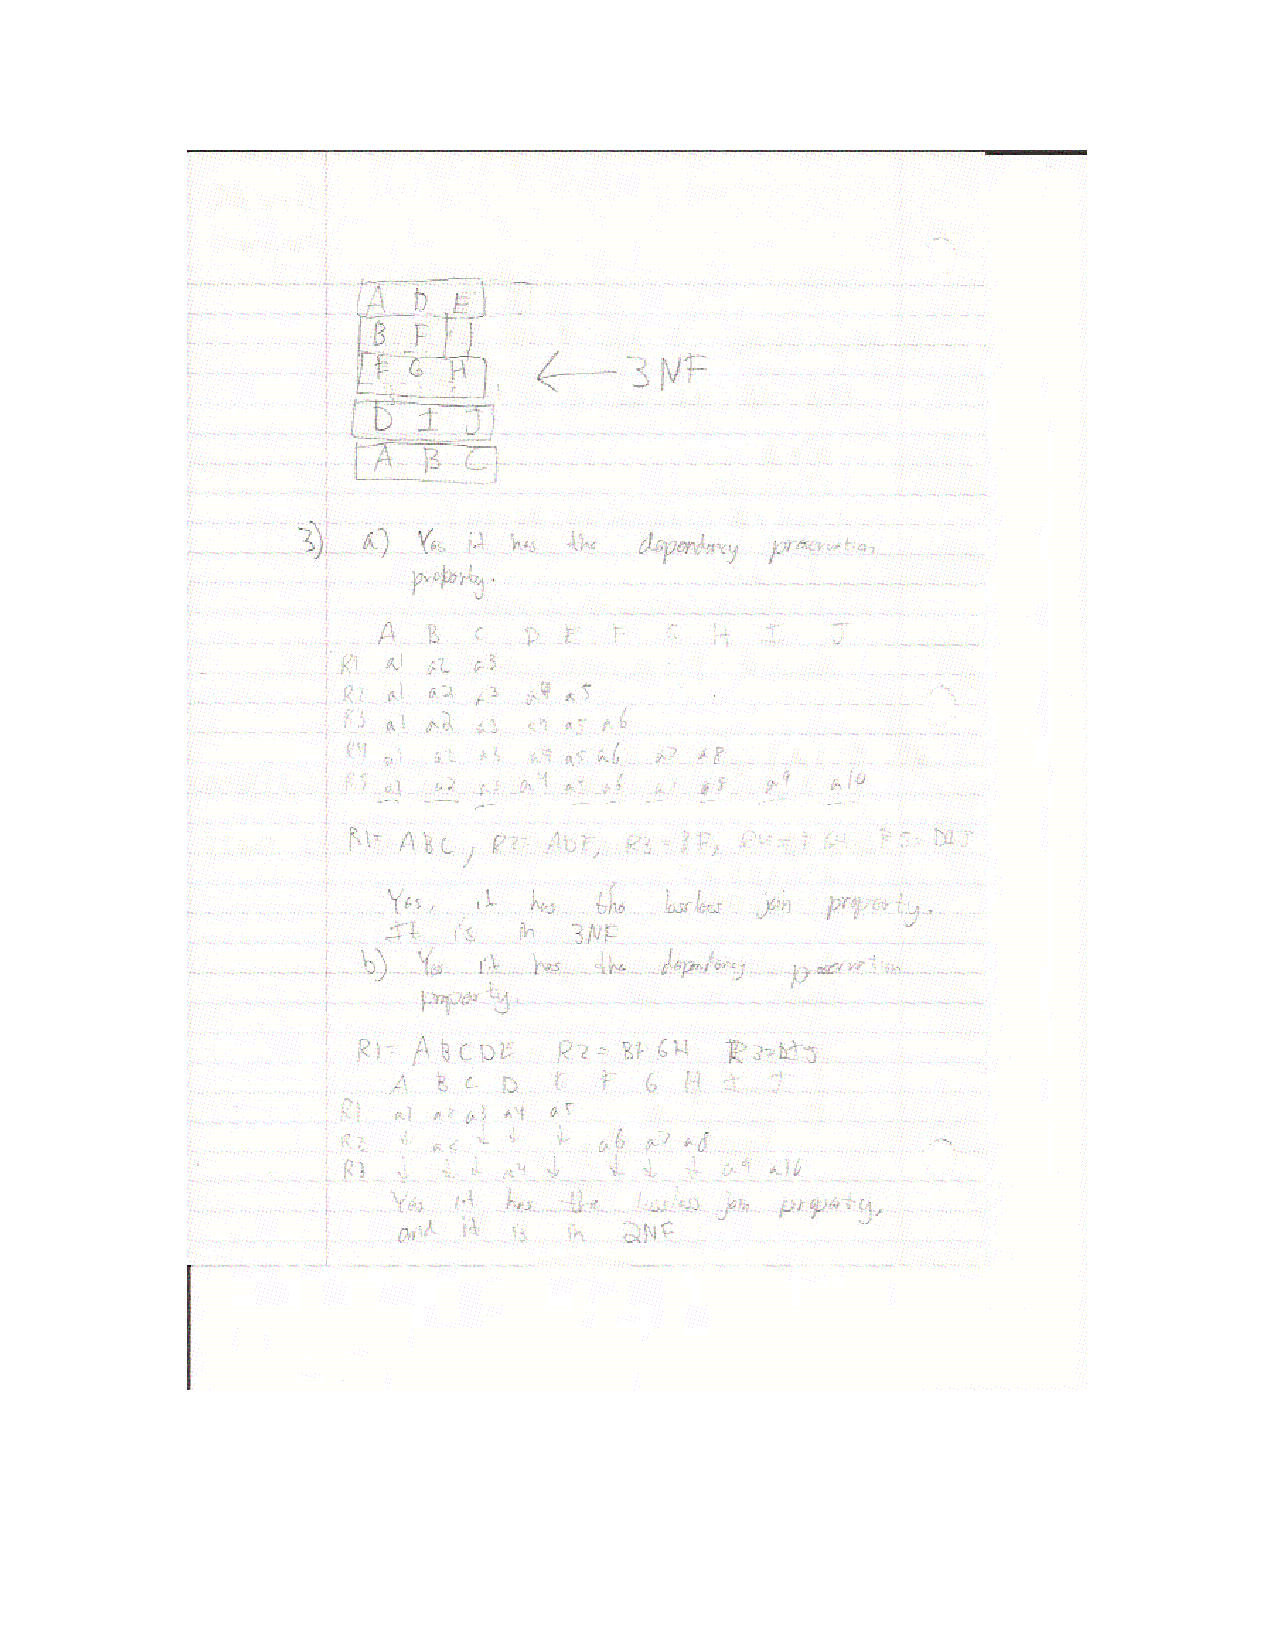 A D E
B F
F G H
← 3NF
D I J
A B C
3) a) Yes it has the dependency preservation
property.
A B C D E F G H I J
R1 a1 a2 a3
R2 a1 a2 a3 a4 a5
R3 a1 a2 a3 a4 a5 a6
R4 a1 a2 a3 a4 a5 a6 a7 a8
R5 a1 a2 a3 a4 a5 a6 a7 a8 a9 a10
R1= ABC, R2= ADE, R3=BF, R4=FGH R5=DIJ
Yes, it has the lossless join property.
It is in 3NF
b) Yes it has the dependency preservation
property.
R1= ABCDE R2= BFGH R3=DIJ
A B C D E F G H I J
R1 a1 a2 a3 a4 a5
R2 ↓ a2 ↓ ↓ ↓ a6 a7 a8
R3 ↓ ↓ ↓ a4 ↓ ↓ ↓ ↓ a9 a10
Yes it has the lossless join property,
and it is in 2NF